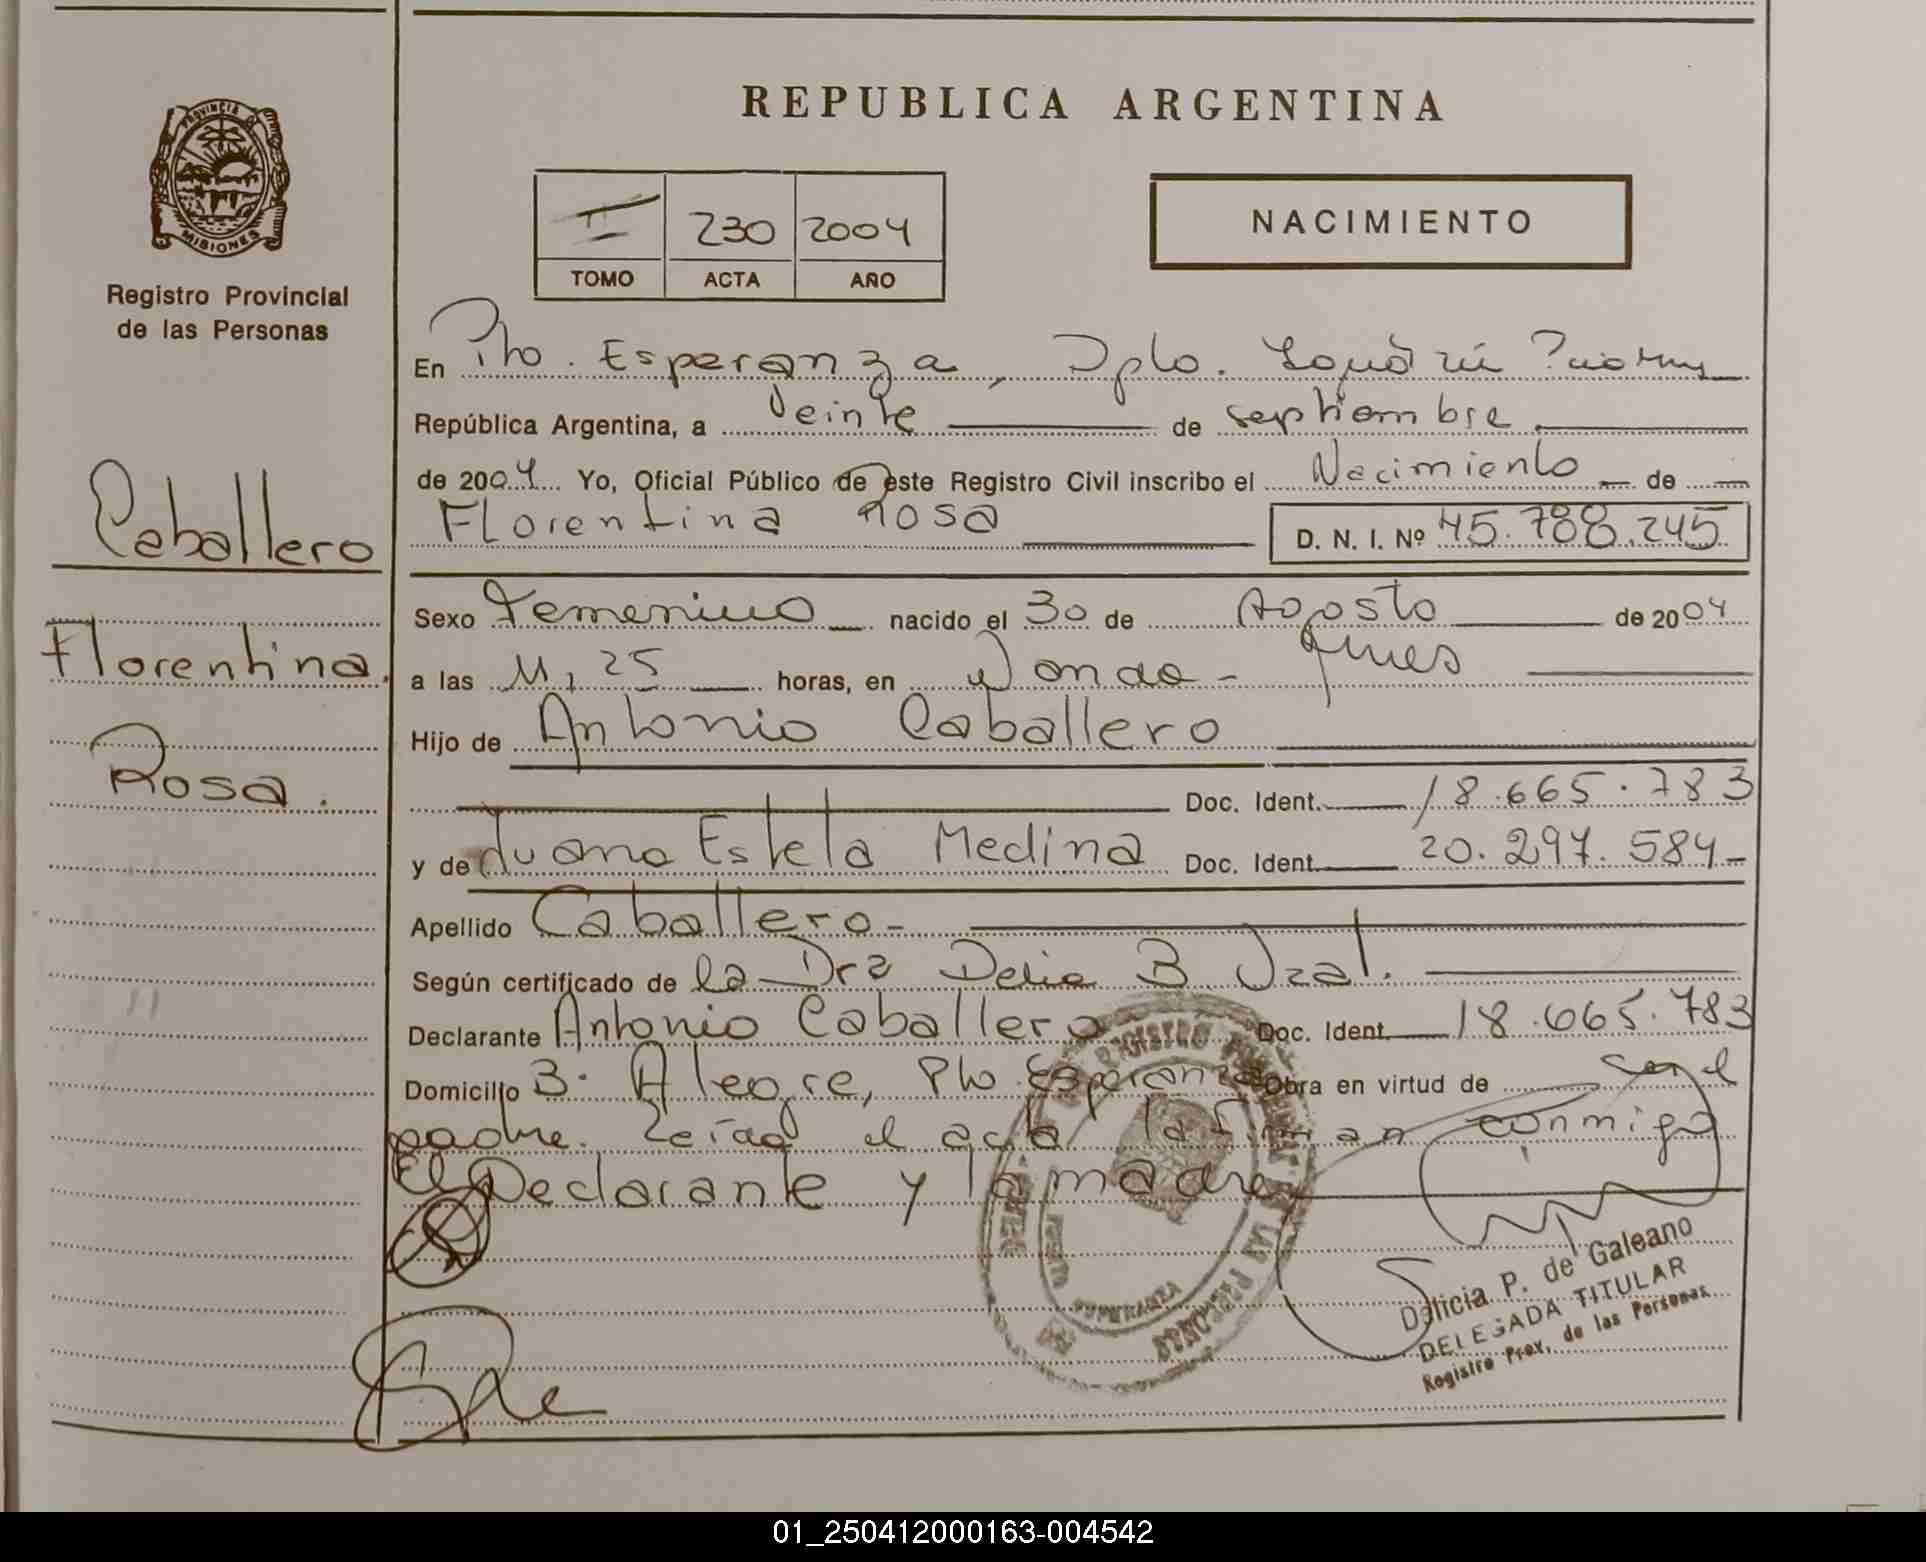 REPUBLICA ARGENTINA
PROVINCIA DE
MISIONES
Registro Provincial
de las Personas
Caballero
Florentina
Rosa.
II 230 2004
TOMO ACTA AÑO
NACIMIENTO
En Pto. Esperanza, Dpto. Iguazú
República Argentina, a veinte de septiembre
de 2004 Yo, Oficial Público de este Registro Civil inscribo el Nacimiento de
Florentina Rosa D. N. I. Nº 45.788.245
Sexo Femenino nacido el 30 de Agosto de 2004
a las 11,25 horas, en Wanda -
Hijo de Antonio Caballero
Doc. Ident. 18.665.783
y de Juana Estela Medina Doc. Ident. 20.297.584-
Apellido Caballero-
Según certificado de la Dra Delia B
Declarante Antonio Caballero Doc. Ident. 18.665.783
Domicilio B. Alegre, Pto. Esperanza Obra en virtud de ser el
padre. Leída el acta la firman conmigo
El Declarante y la madre
REGISTRO PROVINCIAL DE LAS PERSONAS
ESPERANZA
Delicia P. de Galeano
DELEGADA TITULAR
Registro Prov. de las Personas
01_250412000163-004542